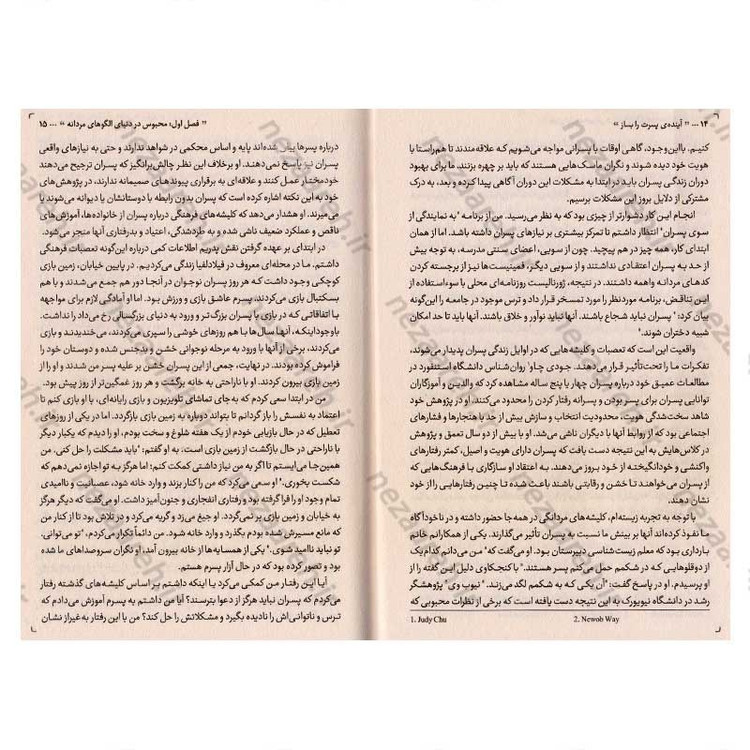 ۱۴ ... " آینده‌ی پسرت را بساز "
کنیم. بااین‌وجود، گاهی اوقات با پسرانی مواجه می‌شویم که علاقه‌مندند تا هم‌راستا با
هویت خود دیده شوند و نگران ماسک‌هایی هستند که باید بر چهره بزنند. ما برای بهبود
دوران زندگی پسران باید در ابتدا به مشکلات این دوران آگاهی پیدا کرده و بعد، به درک
مشترکی از دلایل بروز این مشکلات برسیم.
انجام این کار دشوارتر از چیزی بود که به نظر می‌رسید. من از برنامه "به نمایندگی از
سوی پسران" انتظار داشتم تا تمرکز بیشتری بر نیازهای پسران داشته باشد. اما از همان
ابتدای کار، همه چیز در هم پیچید. چون از سویی، اعضای سنتی مدرسه، به توجه بیش
از حد به پسران اعتقادی نداشتند و از سویی دیگر، فمینیست‌ها نیز از برجسته کردن
کدهای مردانه واهمه داشتند. در نتیجه، ژورنالیست روزنامه‌ای محلی با سوءاستفاده از
این تناقض، برنامه موردنظر را مورد تمسخر قرار داد و ترس موجود در جامعه را این‌گونه
بیان کرد: "پسران نباید شجاع باشند. آنها نباید نوآور و خلاق باشند. آنها باید تا حد امکان
شبیه دختران شوند."
واقعیت این است که تعصبات و کلیشه‌هایی که در اوایل زندگی پسران پدیدار می‌شوند،
تفکرات ما را تحت‌تأثیر قرار می‌دهند. جودی چاو¹ روان‌شناس دانشگاه استنفورد در
مطالعات عمیق خود درباره پسران چهار یا پنج ساله مشاهده کرد که والدین و آموزگاران
توانایی پسران برای پسر بودن و پسرانه رفتار کردن را محدود می‌کنند. او در پژوهش خود
شاهد سخت‌شدگی هویت، محدودیت انتخاب و سازش بیش از حد با هنجارها و فشارهای
اجتماعی بود که از روابط آنها با دیگران ناشی می‌شد. او با بیش از دو سال تعمق و پژوهش
در کلاس‌هایش به این نتیجه دست یافت که پسران دارای هویت و اصیل، کمتر رفتارهای
واکنشی و خودانگیخته از خود بروز می‌دهند. به اعتقاد او سازگاری با فرهنگ‌هایی که
از پسران می‌خواهند تا خشن و رقابتی باشند باعث شده تا چنین رفتارهایی را از خود
نشان دهند.
با توجه به تجربه زیسته‌ام، کلیشه‌های مردانگی در همه‌جا حضور داشته و در ناخودآگاه
ما نفوذ کرده‌اند آنها بر بینش ما نسبت به پسران تأثیر می‌گذارند. یکی از همکارانم خانم
بارداری بود که معلم زیست‌شناسی دبیرستان بود. او می‌گفت که "من می‌دانم کدام یک
از دوقلوهایی که در شکمم حمل می‌کنم پسر هستند." با کنجکاوی دلیل این گفته را از
او پرسیدم. او در پاسخ گفت: "آن یکی که به شکمم لگد می‌زند." نیوب وی² پژوهشگر
رشد در دانشگاه نیویورک به این نتیجه دست یافته است که برخی از نظرات محبوبی که
1. Judy Chu 2. Newob Way
" فصل اول: محبوس در دنیای الگوهای مردانه " ... ۱۵
درباره پسرها بیان شده‌اند پایه و اساس محکمی در شواهد ندارند و حتی به نیازهای واقعی
پسران نیز پاسخ نمی‌دهند. او برخلاف این نظر چالش‌برانگیز که پسران ترجیح می‌دهند
خودمختار عمل کنند و علاقه‌ای به برقراری پیوندهای صمیمانه ندارند، در پژوهش‌های
خود به این نکته اشاره کرده است که پسران بدون رابطه با دوستانشان یا دیوانه می‌شوند یا
می‌میرند. او هشدار می‌دهد که کلیشه‌های فرهنگی درباره پسران از خانواده‌ها، آموزش‌های
ناقص و عملکرد ضعیف ناشی شده و به طردشدگی، اعتیاد و بدرفتاری آنها منجر می‌شود.
در ابتدای بر عهده گرفتن نقش پدریم اطلاعات کمی درباره این‌گونه تعصبات فرهنگی
داشتم. ما در محله‌ای معروف در فیلادلفیا زندگی می‌کردیم. در پایین خیابان، زمین بازی
کوچکی وجود داشت که هر روز پسران نوجوان در آنجا دور هم جمع می‌شدند و با هم
بسکتبال بازی می‌کردند، پسرم عاشق بازی و ورزش بود. اما او آمادگی لازم برای مواجهه
با اتفاقاتی که در بازی با پسران بزرگ‌تر و ورود به دنیای بزرگسالی رخ می‌داد را نداشت.
باوجوداینکه، آنها سال‌ها با هم روزهای خوشی را سپری می‌کردند، می‌خندیدند و بازی
می‌کردند، برخی از آنها با ورود به مرحله نوجوانی خشن و بدجنس شده و دوستان خود را
فراموش کرده بودند. در نهایت، جمعی از این پسران خشن بر علیه پسر من شدند و او را از
زمین بازی بیرون کردند. او با ناراحتی به خانه برگشت و هر روز غمگین‌تر از روز پیش بود.
من در ابتدا سعی کردم که به جای تماشای تلویزیون و بازی رایانه‌ای، با او بازی کنم و
اعتماد به نفسش را باز گردانم تا بتواند دوباره به زمین بازی بازگردد. اما در یکی از روزهای
تعطیل که در حال بازیابی خودم از یک هفته شلوغ و سخت بودم، او را دیدم که یکبار دیگر
با ناراحتی در حال بازگشت از زمین بازی است. به او گفتم: "باید مشکلت را حل کنی. من
همین‌جا می‌ایستم تا اگر به من نیاز داشتی کمکت کنم؛ اما هرگز به تو اجازه نمی‌دهم که
شکست بخوری." او سعی می‌کرد که من را کنار بزند و وارد خانه شود، عصبانیت و ناامیدی
تمام وجود او را فرا گرفته بود و رفتاری انفجاری و جنون‌آمیز داشت. او می‌گفت که دیگر هرگز
به خیابان و زمین بازی بر نمی‌گردد. او جیغ می‌زد و گریه می‌کرد و در تلاش بود تا از کنار من
که مانع مسیرش شده بودم بگذرد و وارد خانه شود. من دائماً تکرار می‌کردم، "تو می‌توانی.
تو نباید ناامید شوی." یکی از همسایه‌ها از خانه بیرون آمد، او نگران سروصداهای ما شده
بود و تصور کرده بود که در حال آزار پسرم هستم.
آیا این رفتار من کمکی می‌کرد یا اینکه داشتم بر اساس کلیشه‌های گذشته رفتار
می‌کردم که پسران نباید هرگز از دعوا بترسند؟ آیا من داشتم به پسرم آموزش می‌دادم که
ترس و ناتوانی‌اش را نادیده بگیرد و مشکلاتش را حل کند؟ من با این رفتار به‌غیراز نشان